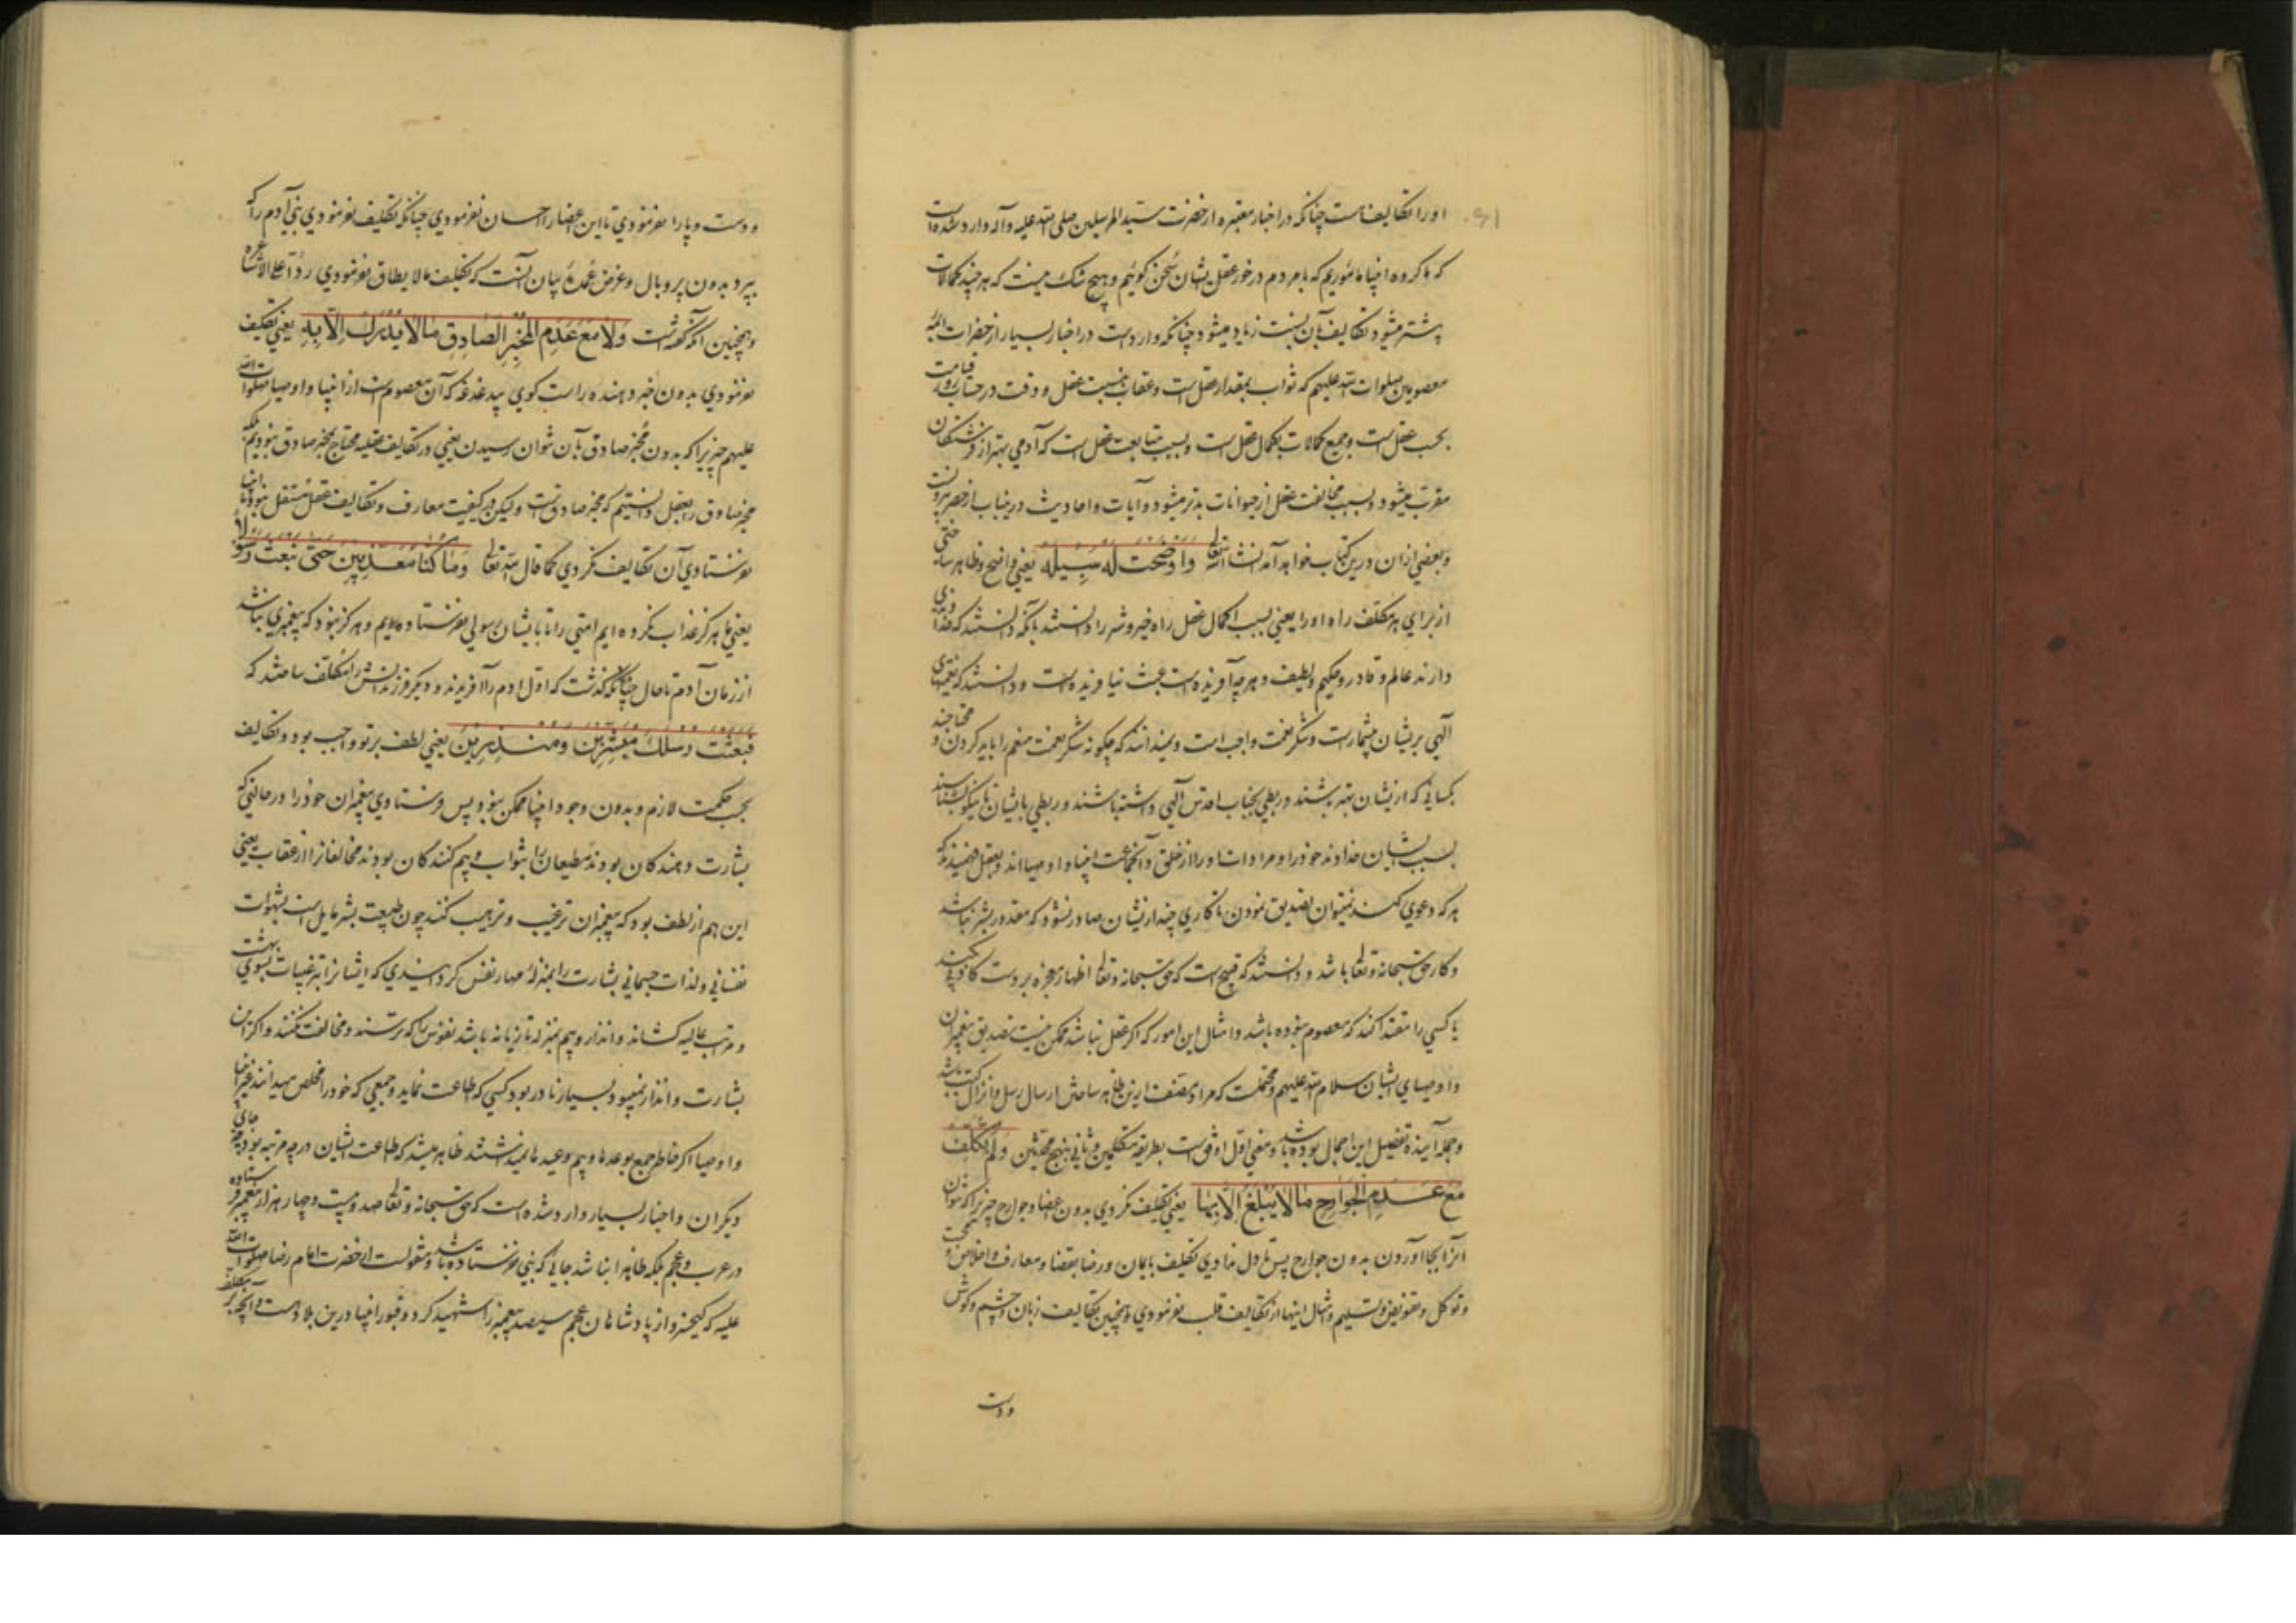 او را تکالیف است چنانکه در اخبار معتبره از حضرت سید المرسلین صلی الله علیه وآله وارد شده است
که ما کروه انبیا مامٔوریم که با مردم در خور عقل یشان سخن کوئیم و هیچ شک نیست که هر چند کمالات
پشتر میشود تکالیف بآن نسبت زیاد میشود چنانکه وارد است در اخبار بسیار از حضرات ائمه
معصومین صلوات الله علیهم که ثواب بمقدار عقل است و عقاب بنسبت عقل و وقت در حساب روز قیامت
بحسب عقل است و جمیع کمالات بکمال عقل است و بسبب متابعت عقل است که آدمی بهتر از فرشتکان
مقرب میشود و بسبب مخالفت عقل از حیوانات بدتر میشود و آیات و احادیث درینباب از حصر بیرونست
و بعضی ازان درین کتاب خواهد آمد انشاء الله تعالی وَاَوْضَحْتَ لَهُ سَبِیلَهُ یعنی واضح و ظاهر ساختی
از برای هر مکلف راه او را یعنی بسبب اکمال عقل راه خیر و شر را دانستند بآنکه دانستند که خداوندی
دارند عالم و قادر و حکیم و لطیف و هر چه آفریده است عبث نیافریده است و دانستند که نعمتهای
آلهی بریشان بیشمار است و شکر نعمت واجب است و نمیدانند که چکونه شکر نعمت منعم را باید کردن و محتاجند
بکسانی که ازیشان بهتر باشند و ربطی بجناب اقدس آلهی داشته باشند و ربطی بایشان تا نیکو بشناسند
بسبب یشان خداوند خود را و مرادات او را از خلق و آنجماعت انبیا و اوصیااند و بعقل فهمیدند که
هر که دعوی کند نمیتوان تصدیق نمودن تا کاری چند ازیشان صادر نشود که مقدور بشر نباشد
و کار حق سبحانه و تعالی باشد و دانستند که قبیح است که حق سبحانه و تعالی اظهار معجزه بر دست کاذب کند
یا کسی را مقتدا کند که معصوم نبوده باشد و امثال این امور که اکر عقل نباشد ممکن نیست تصدیق پیغمبران
و اوصیای ایشان سلام الله علیهم و محتملست که مراد مصنف ازین ظاهر ساختن ارسال رسل و انزال کتب باشد
و جمله آینده تفصیل این اجمال بوده باشد و معنی اول اوفق است بطریقه متکلمین و ثانی بنهج محدثین وَلَمْ تُکَلِّفْ
مَعَ عَدَمِ الْجَوَارِحِ مَا لَا یُبْلَغُ اِلَّا بِهَا یعنی تکلیف نکردی بدون اعضا و جوارح چیزیرا که نتوان
آنرا بجا آوردن بدون جوارح پس تا دل ندادی تکلیف بایمان و رضا بقضا و معارف و اخلاص و محبت
و توکل و تفویض و تسلیم و امثال اینها از تکالیف قلب نفرمودی و همچنین تکالیف زبان و چشم و کوش
و دست
و دست و پا را نفرمودی تا این اعضا را احسان نفرمودی چنانکه تکلیف نفرمودی بنی آدم را که
بپرد بدون پر و بال و غرض عمده بیان آنست که تکلیف ما لا یطاق نفرمودی ردّا علی الاشاعره
و همچنین آنکه کفته است وَلَا مَعَ عَدَمِ الْمُخْبِرِ الصَّادِقِ مَا لَا یُدْرَکُ اِلَّا بِهِ یعنی تکلیف
نفرمودی بدون خبر دهنده راست کوی بیدغدغه که آن معصوم است از انبیا و اوصیا صلوات الله
علیهم چیزیرا که بدون مخبر صادق بآن نتوان رسیدن یعنی در تکالیف عقلیه محتاج بمخبر صادق نبودیم بلکه
مخبر صادق را بعقل دانستیم که مخبر صادقست و لیکن در کیفیت معارف و تکالیف عقل مستقل نبود تا انبیا
نفرستادی آن تکالیف نکردی کما قال الله تعالی وَمَا کُنَّا مُعَذِّبِینَ حَتَّی نَبْعَثَ رَسُولًا
یعنی ما هرکز عذاب نکرده ایم امتی را تا بایشان رسولی نفرستاده ایم و هرکز نبود که پیغمبری نباشد
از زمان آدم تا حال چنانکه کذشت که اول آدم را آفریدند و دیکر فرزندانش را مکلف ساختند که
فَبَعَثْتَ رُسُلَکَ مُبَشِّرِینَ وَمُنْذِرِینَ یعنی لطف بر تو واجب بود و تکالیف
بحسب حکمت لازم و بدون وجود انبیا ممکن نبود پس فرستادی پیغمبران خود را در حالتی که
بشارت دهندکان بودند مطیعان را بثواب و بیم کنندکان بودند مخالفانرا از عقاب یعنی
این هم از لطف بود که پیغمبران ترغیب و ترهیب کنند چون طبیعت بشر مایل است بشهوات
نفسانی و لذات جسمانی بشارت را بمنزلهٔ مهار نفس کردانیدی که ایشانرا بترغیبات بسوی بهشت
و مراتب عالیه کشاند و انذار و بیم بمنزله تازیانه باشد نفوس را که بترسند و مخالفت نکنند و اکر این
بشارت و انذار نمیبود بسیار نادر بود کسی که طاعت نماید و جمعی که خود را مخلص میدانند غیر انبیا
و اوصیا اکر خاطر جمع بوعدها و بیم وعیدها نمیداشتند ظاهر میشد که طاعت ایشان در چه مرتبه بود چه جای
دیکران و اخبار بسیار وارد شده است که حق سبحانه و تعالی صد و بیست و چهار هزار پیغمبر فرستاده
در عرب و عجم بلکه ظاهرا نباشد جائی که نبی نفرستاده باشد و منقولست از حضرت امام رضا صلوات الله
علیه که کیخسرو از پادشاهان عجم سیصد پیغمبر را شهید کرد و قبور انبیا درین بلاد هست و آنچه بر